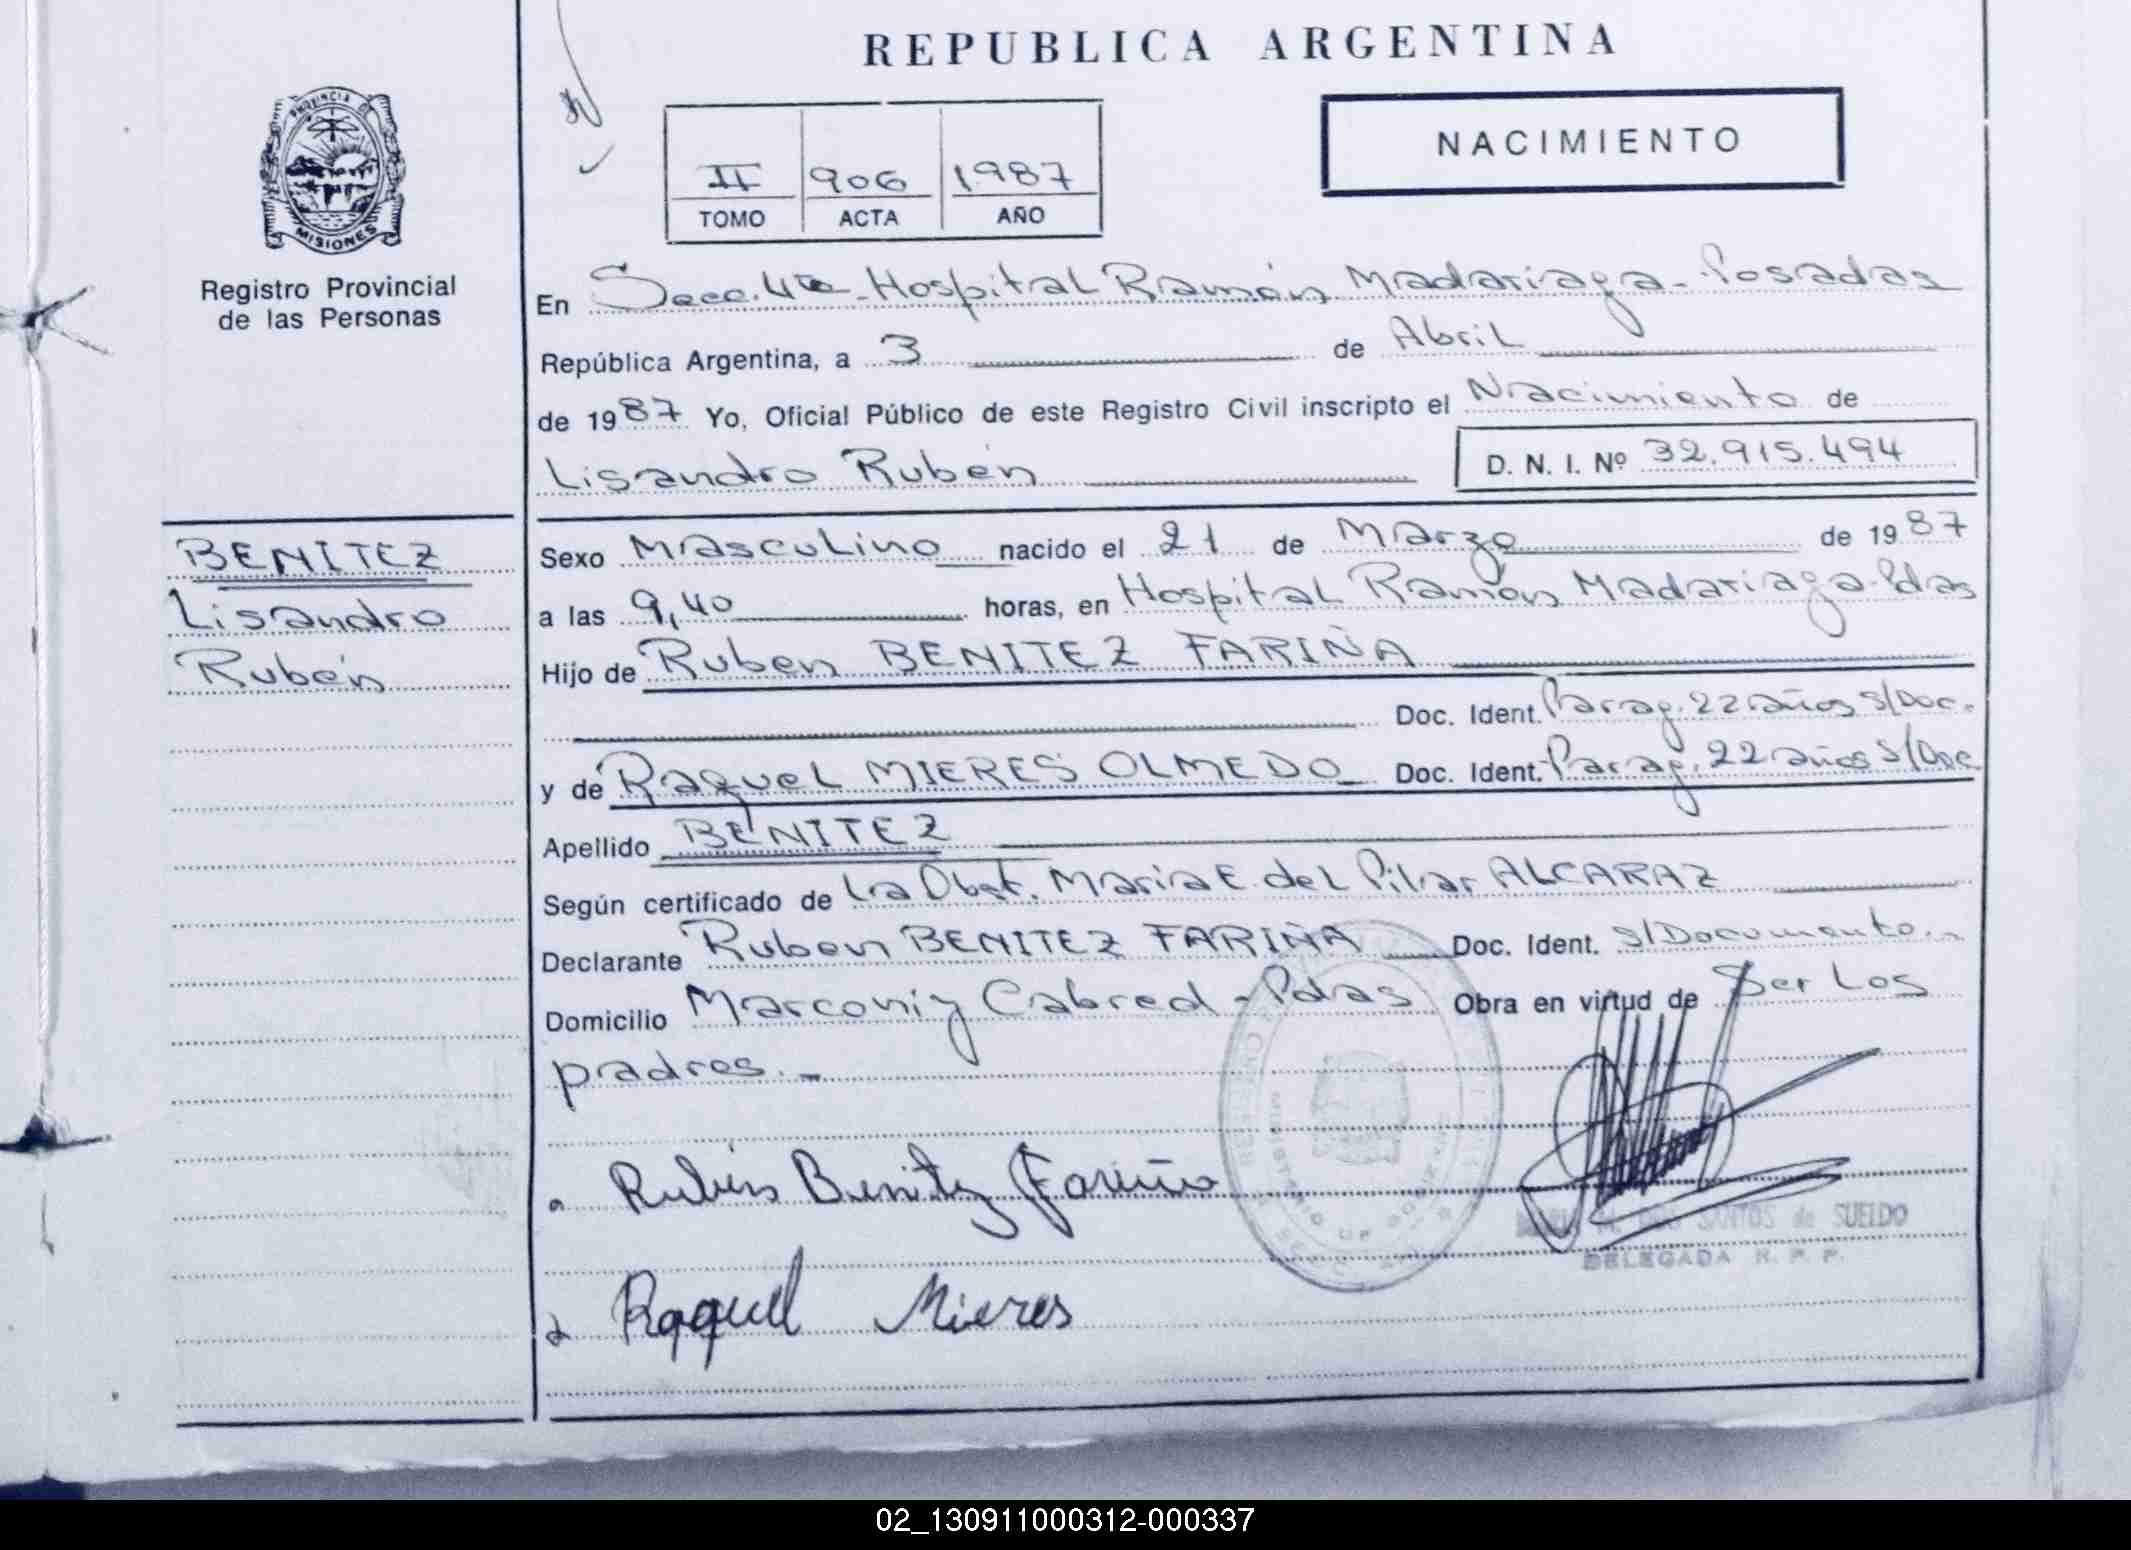 REPUBLICA ARGENTINA
NACIMIENTO
II 906 1987
TOMO ACTA AÑO
PROVINCIA DE
MISIONES
Registro Provincial
de las Personas
En Secc. 4ta - Hospital Ramón Madariaga - Posadas
República Argentina, a 3 de Abril
de 1987 Yo, Oficial Público de este Registro Civil inscripto el Nacimiento de
Lisandro Rubén D. N. I. Nº 32.915.494
BENITEZ
Lisandro
Rubén
Sexo Masculino nacido el 21 de Marzo de 1987
a las 9,40 horas, en Hospital Ramón Madariaga-Pdas
Hijo de Ruben BENITEZ FARIÑA
Doc. Ident. Parag. 22 años s/Doc.
y de Raquel MIERES OLMEDO Doc. Ident. Parag. 22 años s/Doc
Apellido BENITEZ
Según certificado de La Obst. Maria E. del Pilar ALCARAZ
Declarante Ruben BENITEZ FARIÑA Doc. Ident. s/Documento.
Domicilio Marconi y Cabred - Pdas Obra en virtud de Ser Los
padres.-
Rubén Benitez Fariña
SANTOS de SUELDO
DELEGADA R. P. P.
Raquel Mieres
02_130911000312-000337